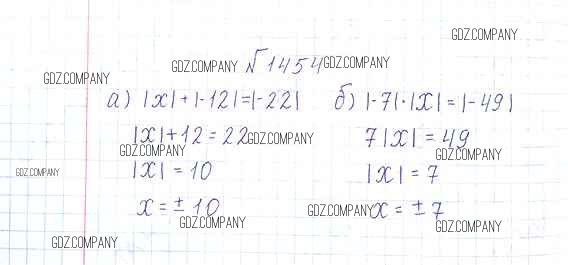 GDZ.COMPANY
№1454
GDZ.COMPANY
GDZ.COMPANY
GDZ.COMPANY
а) |x|+|-12|=|-22|
б) |-7|·|x|=|-49|
|x|+12=22
GDZ.COMPANY
7|x|=49
GDZ.COMPANY
GDZ.COMPANY
GDZ.COMPANY
|x|=10
|x|=7
x=±10
GDZ.COMPANY
x=±7
GDZ.COMPANY
GDZ.COMPANY
GDZ.COMPANY